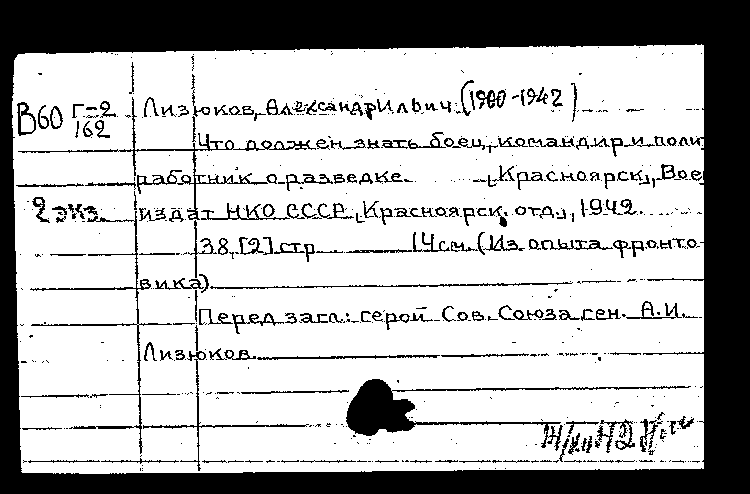 В60 Г-2/162 Лизюков, Александр Ильич (1900-1942)
Что должен знать боец, командир и полит
работник о разведке. [Красноярск], Вое
2 экз. издат НКО СССР [Красноярск. отд.], 1942.
38, [2] стр 14 см. (Из опыта фронто-
вика)
Перед загл: герой Сов. Союза ген. А.И.
Лизюков.